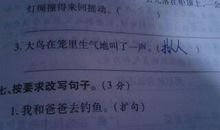 灯绳撞得来回摇动。(
3.大鸟在笼里生气地叫了一声。(拟人
七、按要求改写句子。(3分)
1.我和爸爸去钓鱼。(扩句)